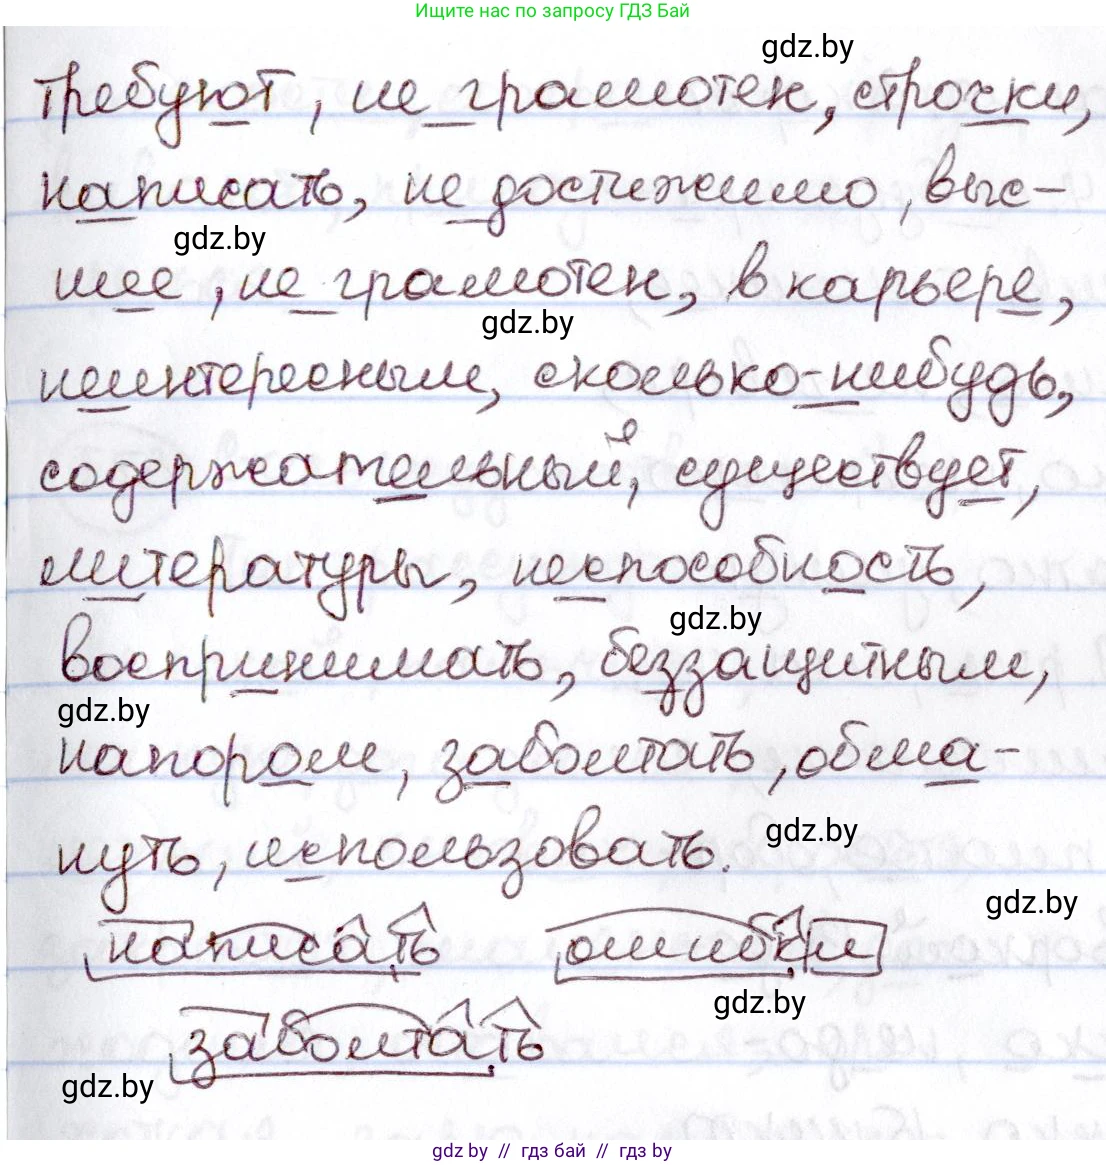 Ищите нас по запросу ГДЗ Бай
gdz.by
требуют, не грамотен, строчки,
написать, не достижимо, выс-
gdz.by
шее, не грамотен, в карьере,
gdz.by
неинтересным, сколько-нибудь,
содержательный, существует,
литературы, неспособность,
gdz.by
воспринимать, беззащитным,
gdz.by
напором, заболтать, обма-
gdz.by
нуть, использовать.
gdz.by
написать ошибки
gdz.by
заболтать
gdz.by
gdz.by // гдз бай // гдз by